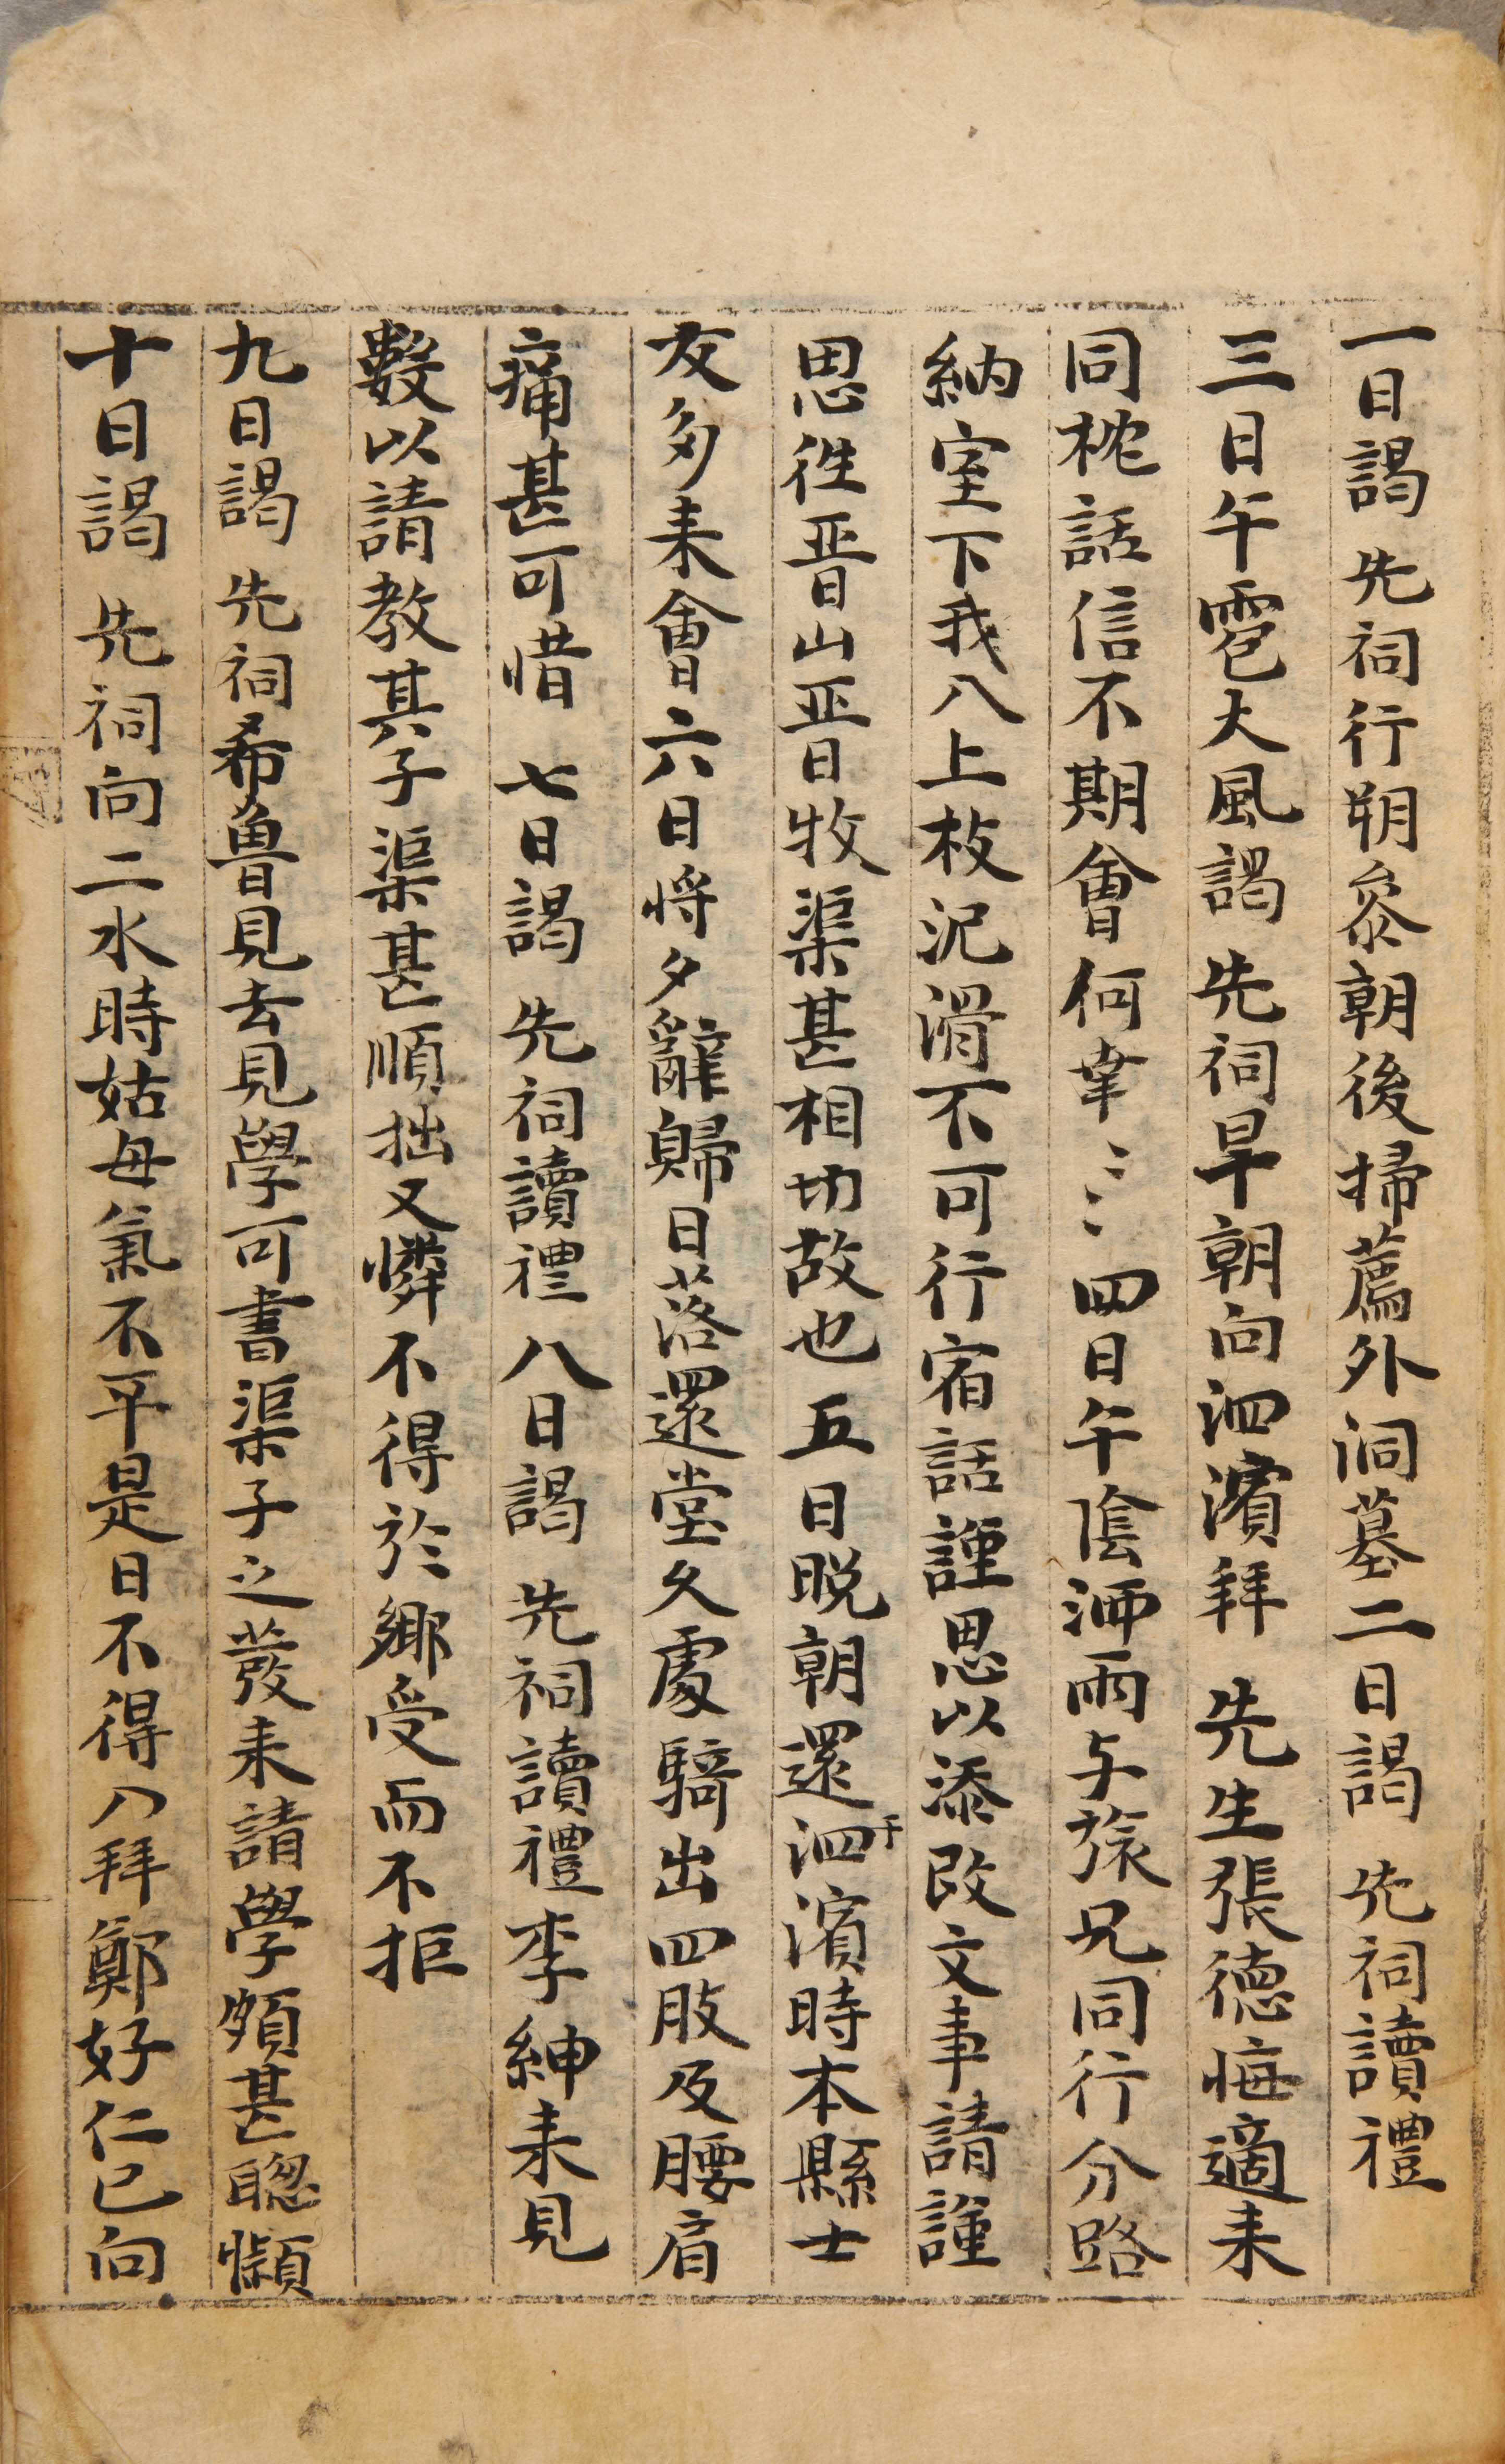 一日謁 先祠行朔叅朝後掃薦外洞墓二日謁 先祠讀禮
三日午雹大風謁 先祠早朝向泗濱拜 先生張德悔適来
同枕話信不期會何幸〻〻四日午陰洒雨与旅兄同行分路
納室下我八上枝泥滑不可行宿話謹思以添改文事請謹
思徃晋山晋牧渠甚相切故也五日晩朝還于泗濱時本縣士
友多来會六日将夕辭歸日落還堂久處騎出四肢及腰肩
痛甚可惜 七日謁 先祠讀禮八日謁 先祠讀禮李紳来見
數以請教其子渠甚順拙又憐不得於鄉受而不拒
九日謁 先祠希魯見去見學可書渠子之發来請學頗甚聦懶
十日謁 先祠向二水時姑母氣不平是日不得入拜鄭好仁已向